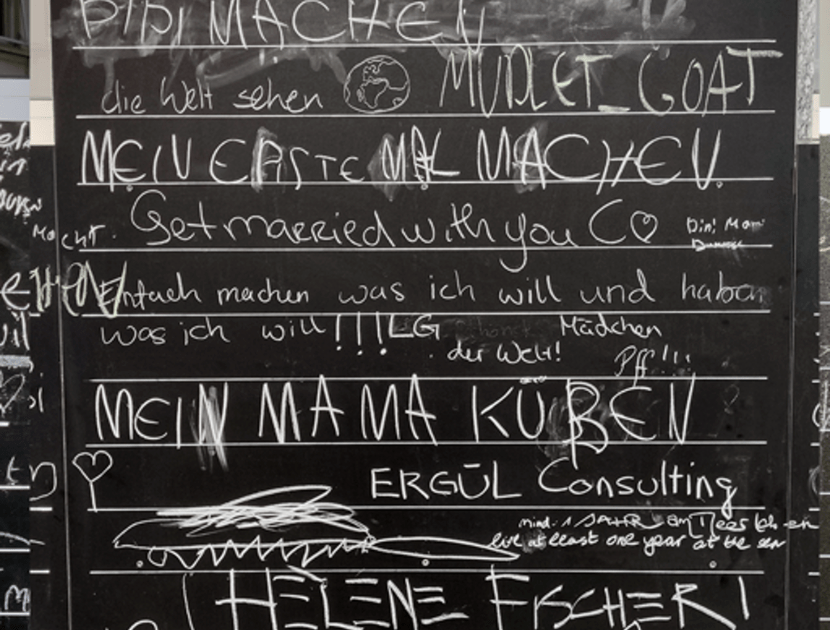 PIPI MACHEN
die Welt sehen MUDLET_GOAT
MEIN ERSTE MAL MACHEN
Get married with you C♡
Einfach machen was ich will und haben
was ich will!!! LG Mädchen
der Welt! Pff!!!
MEIN MAMA KÜßEN
ERGÜL Consulting
mind. 1 JAHR am Meer leben
live at least one year at the sea
HELENE FISCHER